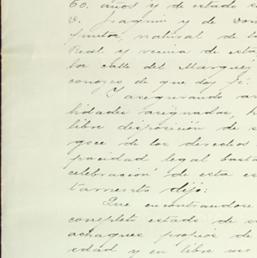 60. años y de estado
S. Joaquin y de
natural de la
Real y vecina de esta
la calle del Marqués
conozco de que doy fé:
Y asegurando
libre disposición de
goce de los derechos
pacidad legal bast
celebración de esta es
tamento dijo:
Que encontrandose
completo estado de
achaques propios de
edad y en libre